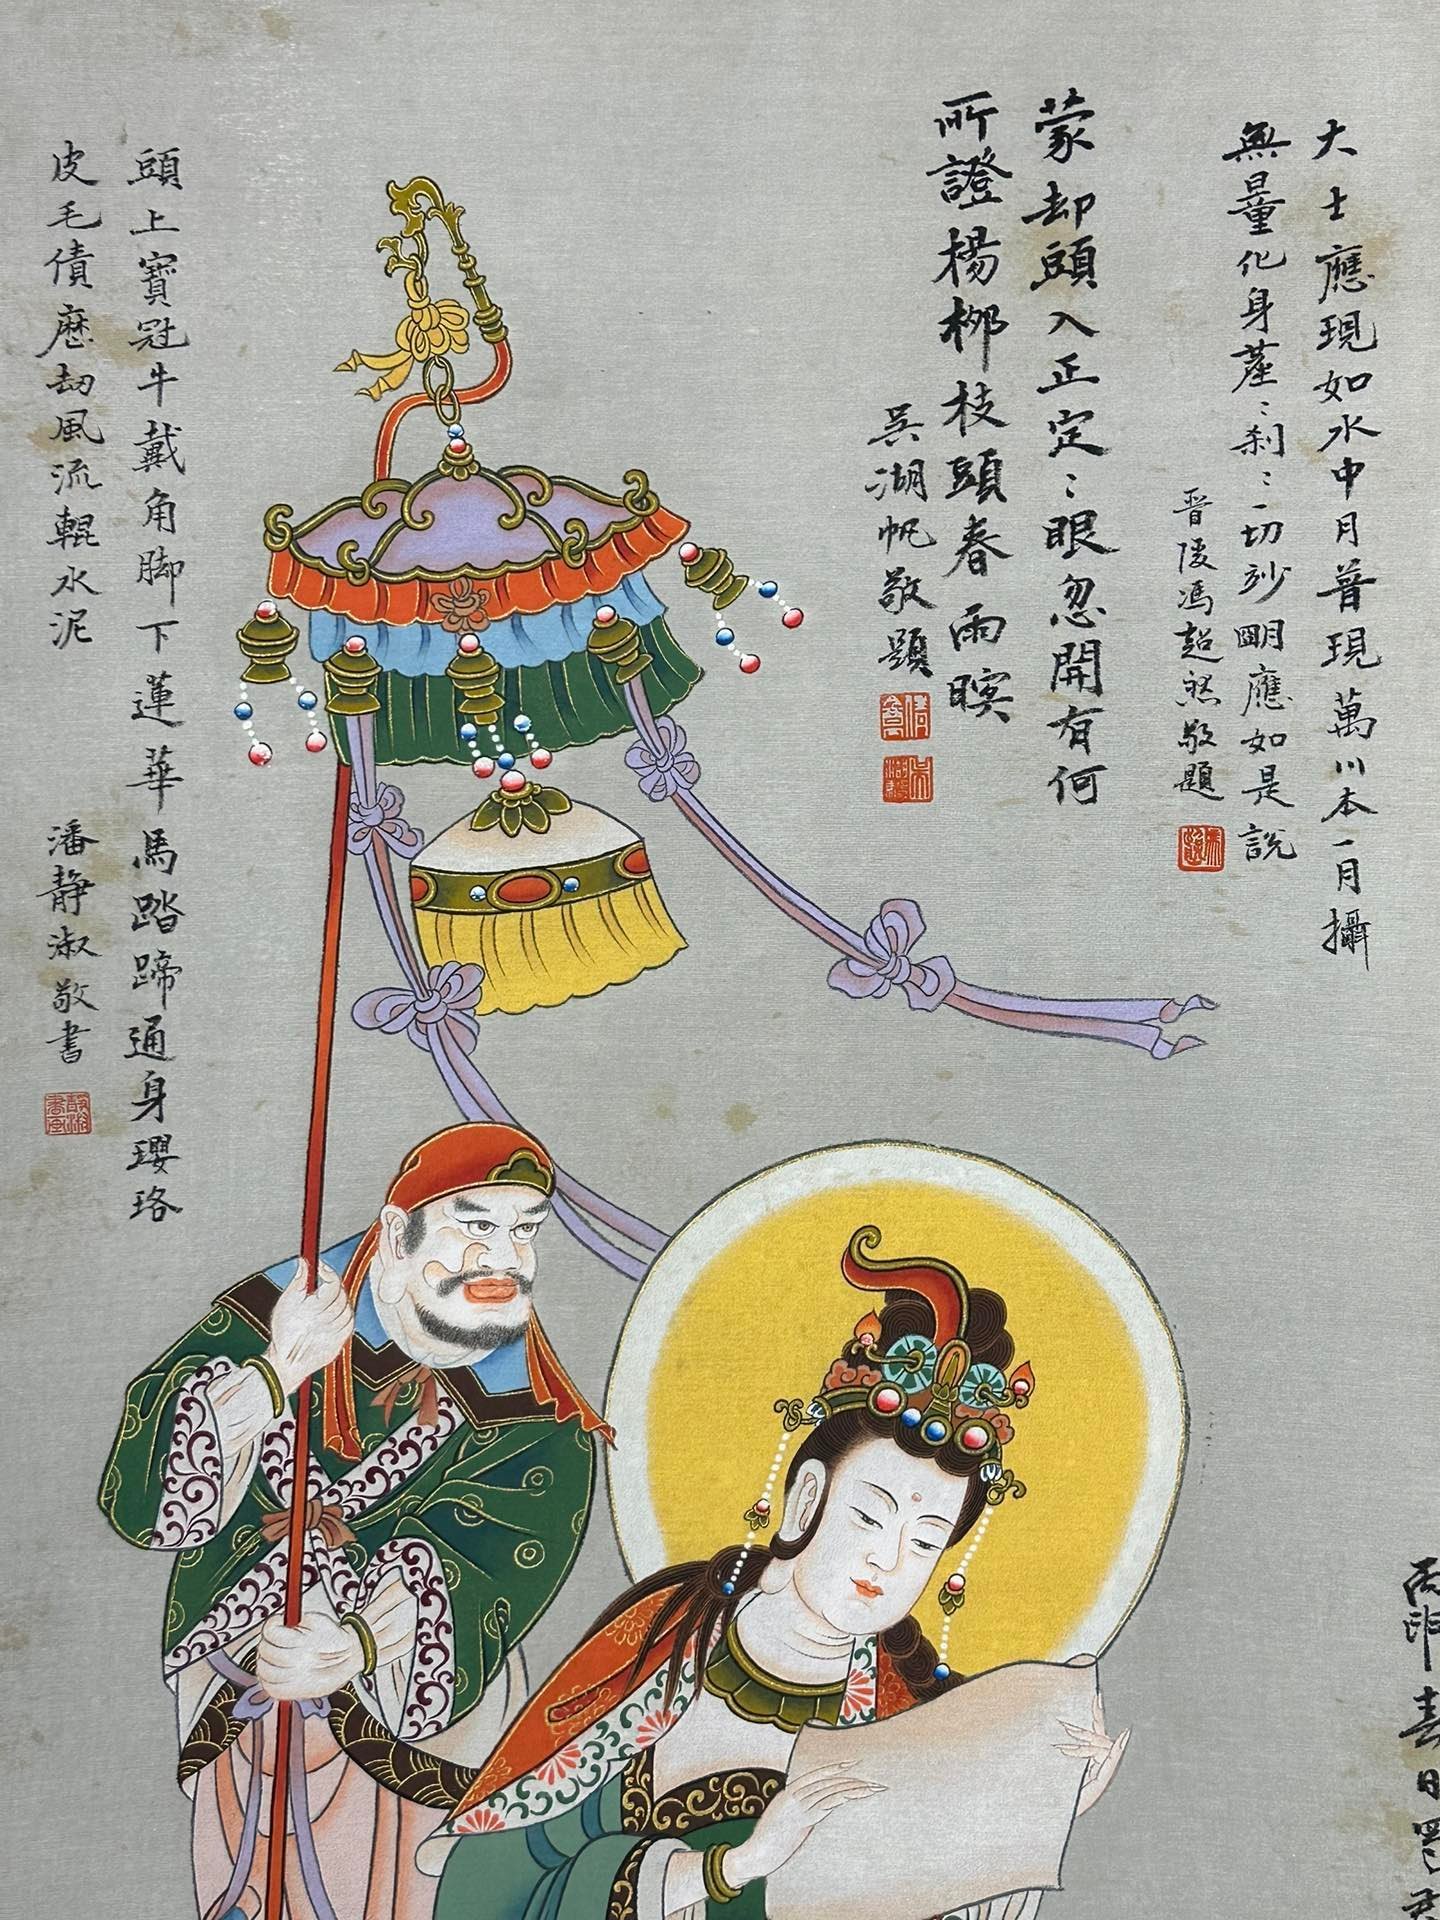 大士應現如水中月普現萬川本一月攝
無量化身塵〻刹〻一切妙明應如是說
晉陵馮超然敬題
蒙却頭入正定〻眼忽開有何
所證楊柳枝頭春雨暝
吳湖帆敬題
頭上寶冠牛戴角脚下蓮華馬踏蹄通身瓔珞
皮毛債歷劫風流輥水泥
潘靜淑敬書
春日